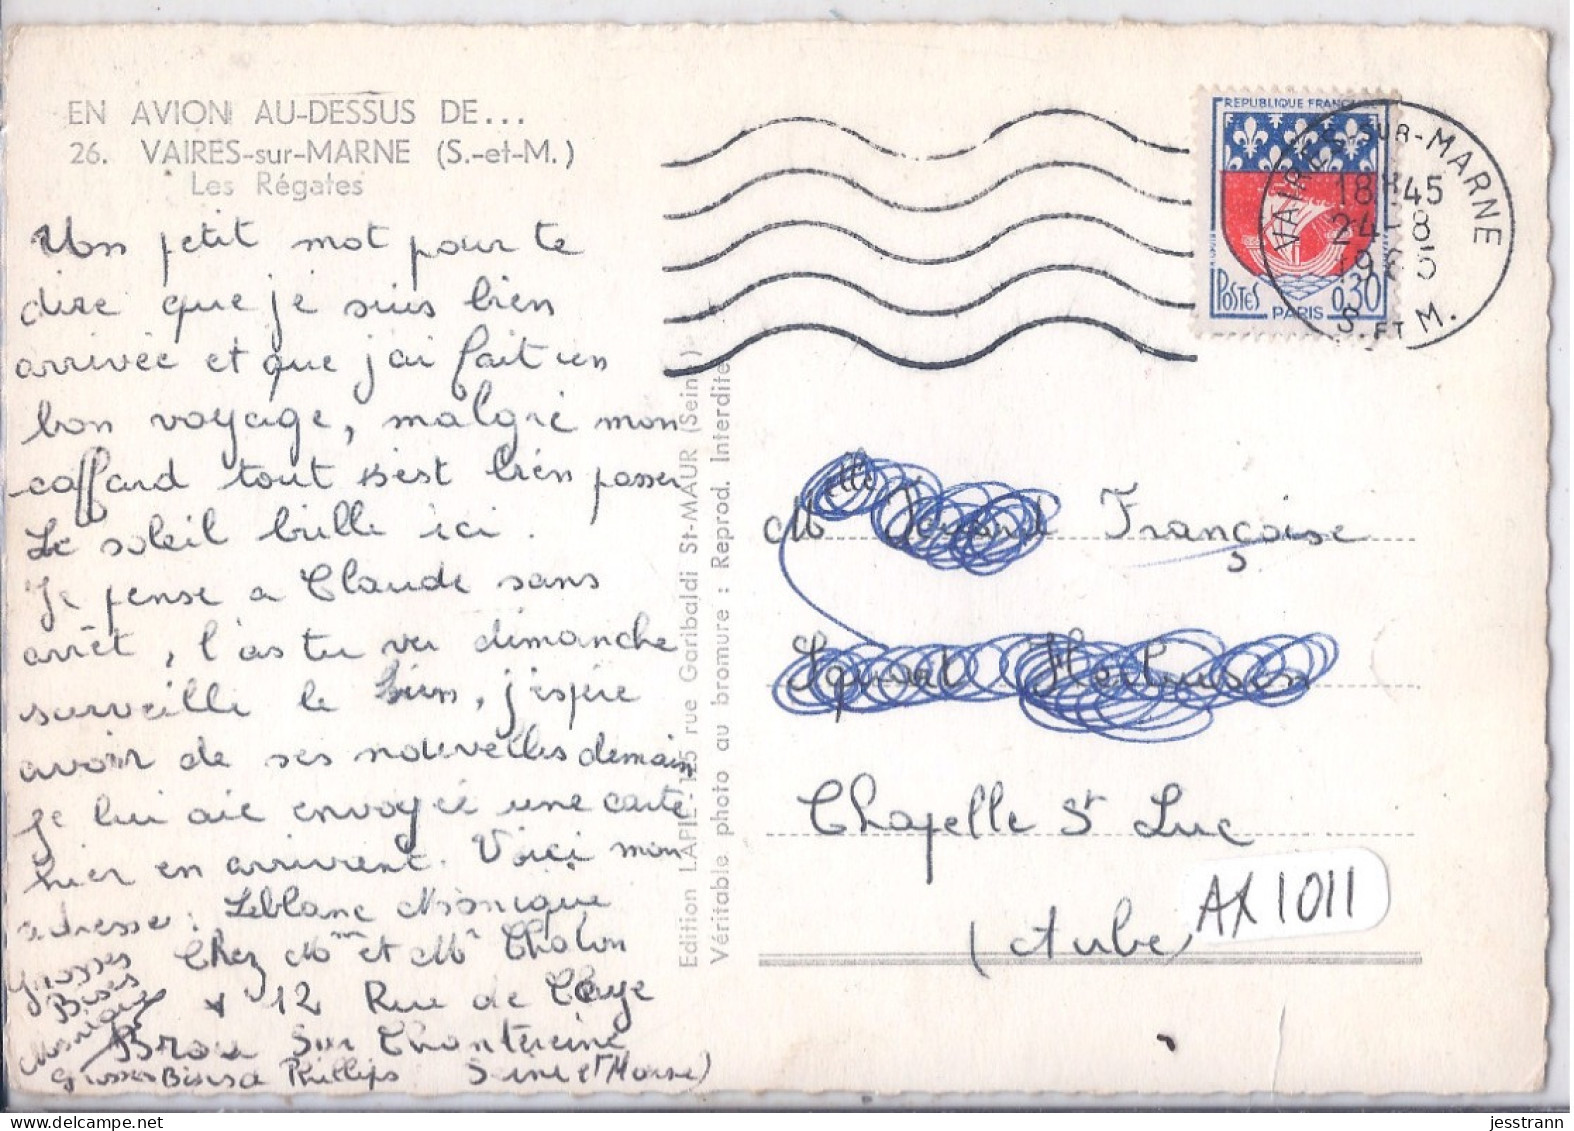 EN AVION AU-DESSUS DE...
26. VAIRES-sur-MARNE (S.-et-M.)
Les Régates
Un petit mot pour te
dire que je suis bien
arrivée et que j'ai fait un
bon voyage, malgré mon
caffard tout s'est bien passer
Le soleil brille ici.
Je pense a Claude sans
arrêt, l'as tu vu dimanche
surveille le bien, j'espère
avoir de ses nouvelles demain
je lui aie envoyée une carte
hier en arrivent. Voici mon
adresse: Leblanc Monique
Chez Mme et Mr Cholon
12 Rue de Caye
Brou Sur Chantereine
Seine et Marne)
Grosses
Bises
Monique
Grosses Bises a Phillips
Edition LAPIE - 125 rue Garibaldi St-MAUR (Seine)
Véritable photo au bromure : Reprod. Interdite
REPUBLIQUE FRANÇAISE
POSTES
PARIS
0,30
VAIRES-SUR-MARNE
18H45
24-8
1965
S. ET M.
Melle Françoise
Chapelle St Luc
(Aube)
AX1011
jesstrann